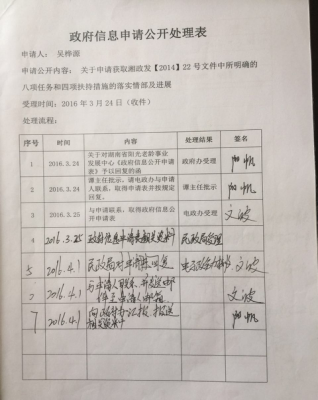 政府信息申请公开处理表
申请人： 吴桦源
申请公开内容： 关于申请获取湘政发【2014】22号文件中所明确的
八项任务和四项扶持措施的落实情部及进展
受理时间：2016年3月24日（收件）
处理流程：
序号 时间 内容 处理结果 签名
1 2016.3.24 关于对湖南省阳光老龄事业
发展中心《政府信息公开申请
表》予以回复的函 政府办受理
2 2016.3.24 谭主任批示：请电政办与申请
人联系，取得申请表并按规定
回复。 谭主任批示
3 2016.3.25 与申请人联系，取得政府信息公开
申请表 电政办受理 文波
4 2016.3.25 政府信息申请表 民政局受理
5 2016.4.1 民政局对申请 回复 文波
2016.4.1 与申请人联系 文波
7 2016.4.1 向政府办汇报